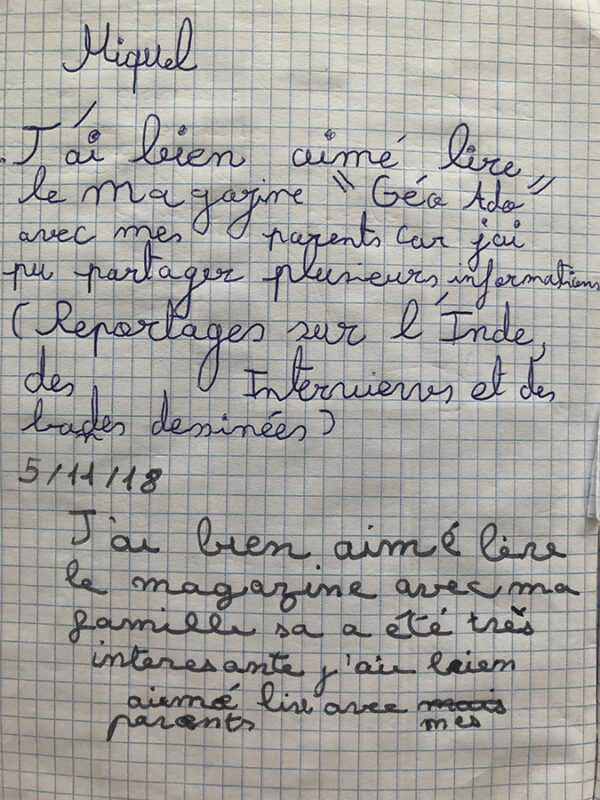 Miquel
J'ai bien aimé lire
le magazine "Géo Ado"
avec mes parents car j'ai
pu partager plusieurs informations
(Reportages sur l'Inde,
des Interviewes et des
bandes dessinées)
5/11/18
J'ai bien aimé lire
le magazine avec ma
famille sa a été très
interesante j'ai bien
aiemé lire avec mais
parents mes